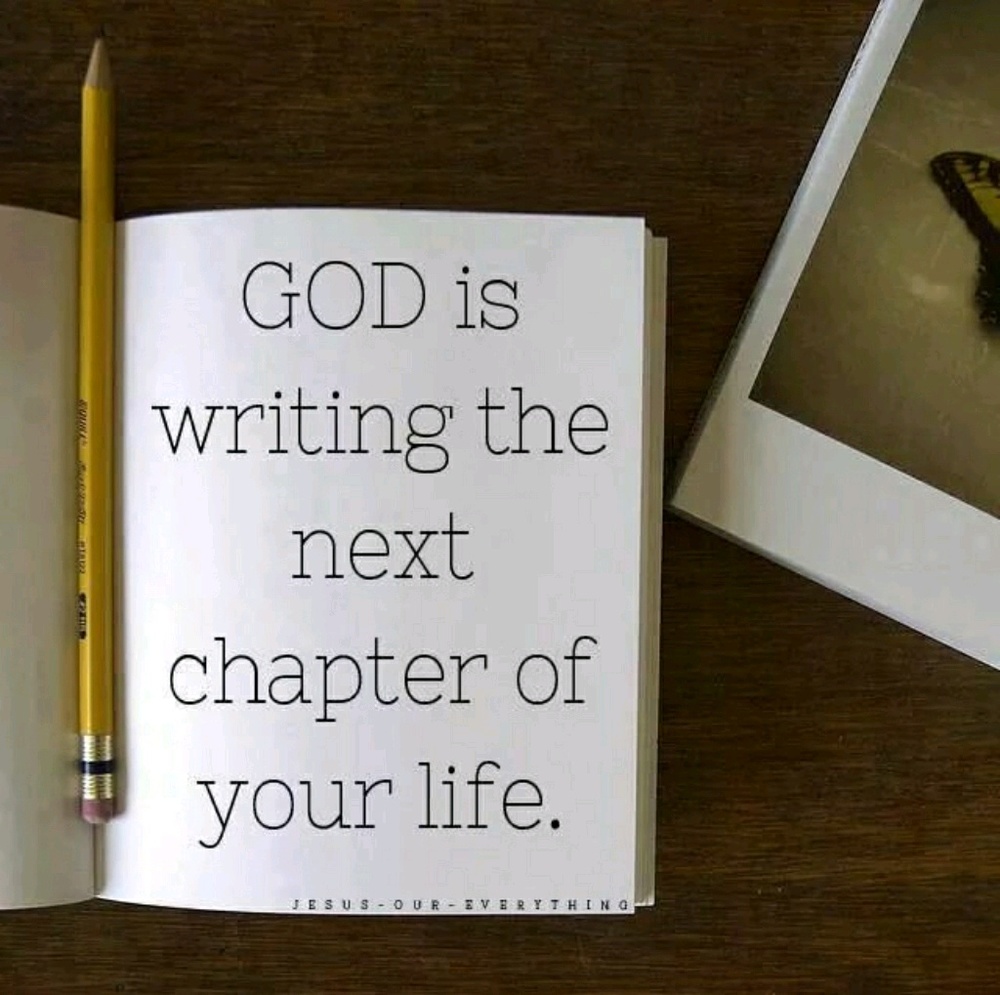 GOD is
writing the
next
chapter of
your life.
JESUS-OUR-EVERYTHING